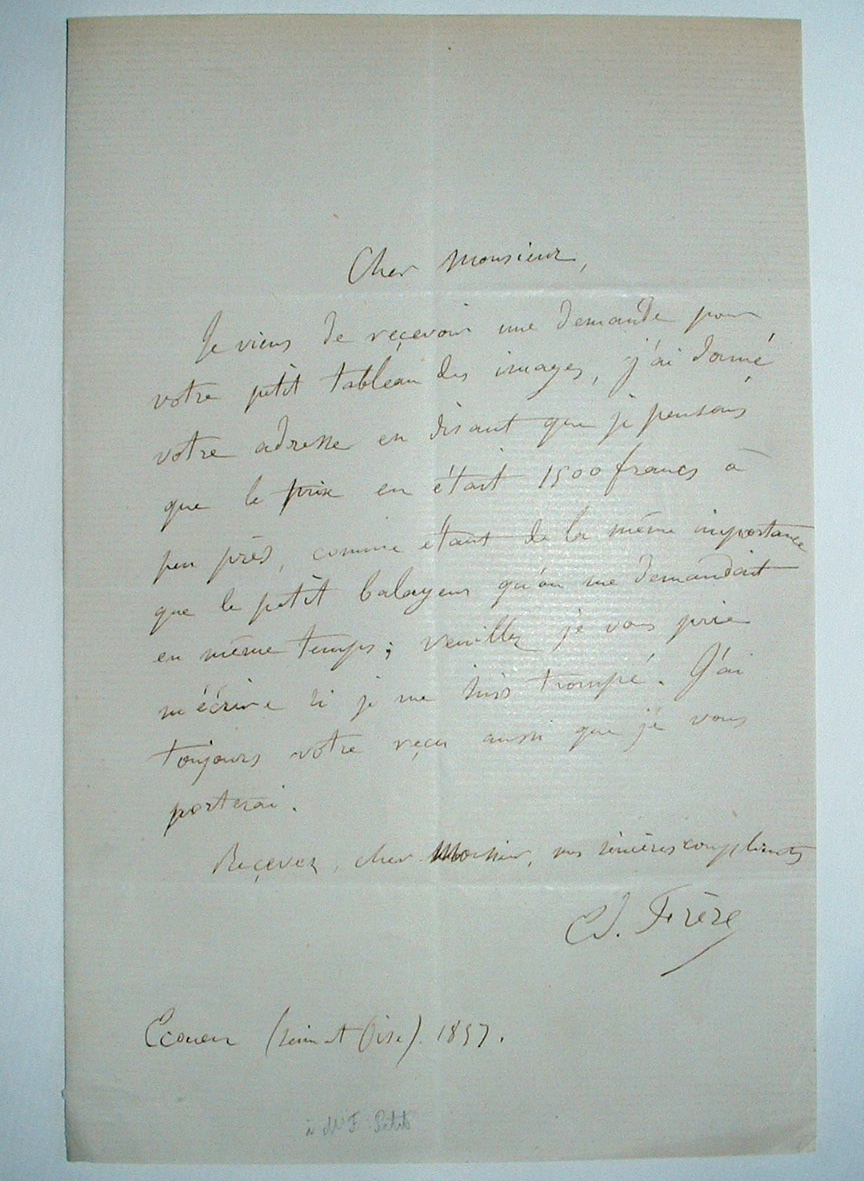 Cher Monsieur,
Je viens de reçevoir une demande pour
votre petit tableau des images, j'ai donné
votre adresse en disant que je pensais
que le prix en était 1500 francs à
peu près, comme étant de la même importance
que le petit balayeur qu'on me demandait
en même temps; veuillez je vous prie
m'écrire si je me suis trompé. J'ai
toujours votre reçu aussi que je vous
porterai.
Reçevez, cher Monsieur, mes sincères compliments
Ed. Frère
Ecouen (Seine et Oise). 1857.
à Mr F. Petit